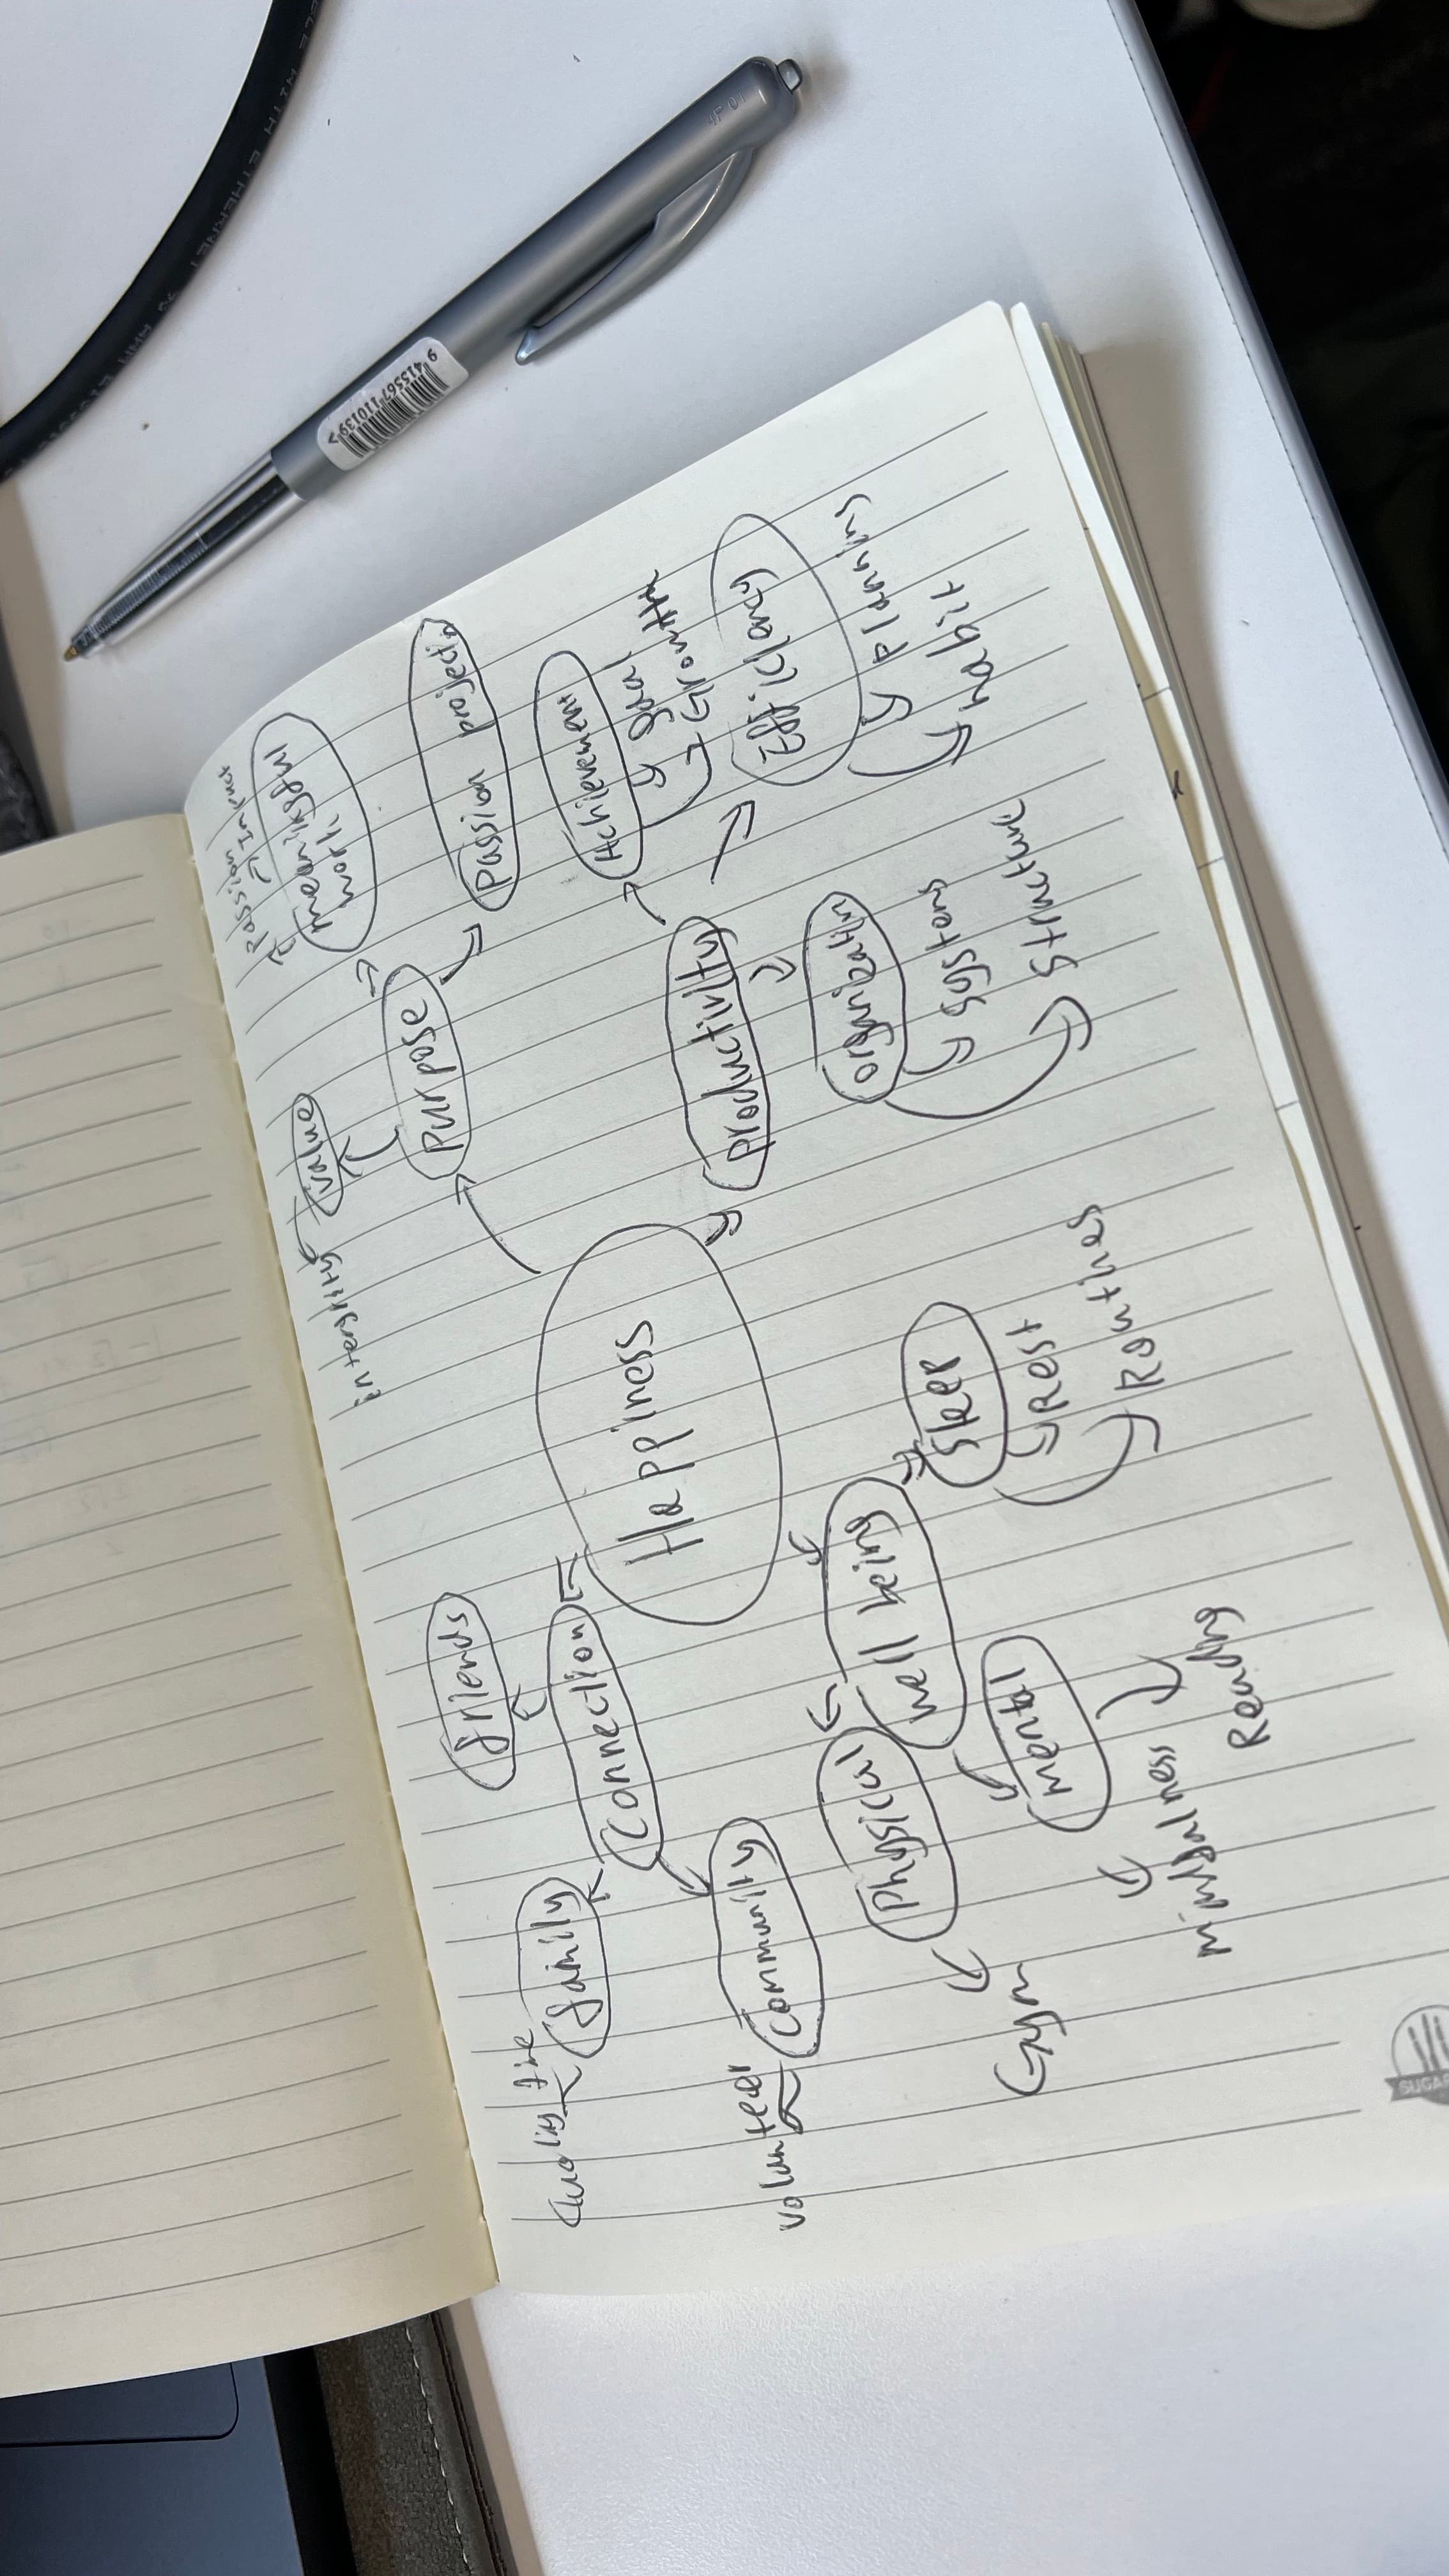 Passion
Impact
meaningful
work
value
integrity
Purpose
Passion project
Achievement
goal
Growth
Productivity
Efficiancy
Planning
habit
organization
systems
structure
Happiness
friends
Connection
family
Quality time
Community
volunteer
well being
Sleep
Rest
Routines
Physical
Gym
mental
Reading
9 415567 110139
SUGAR